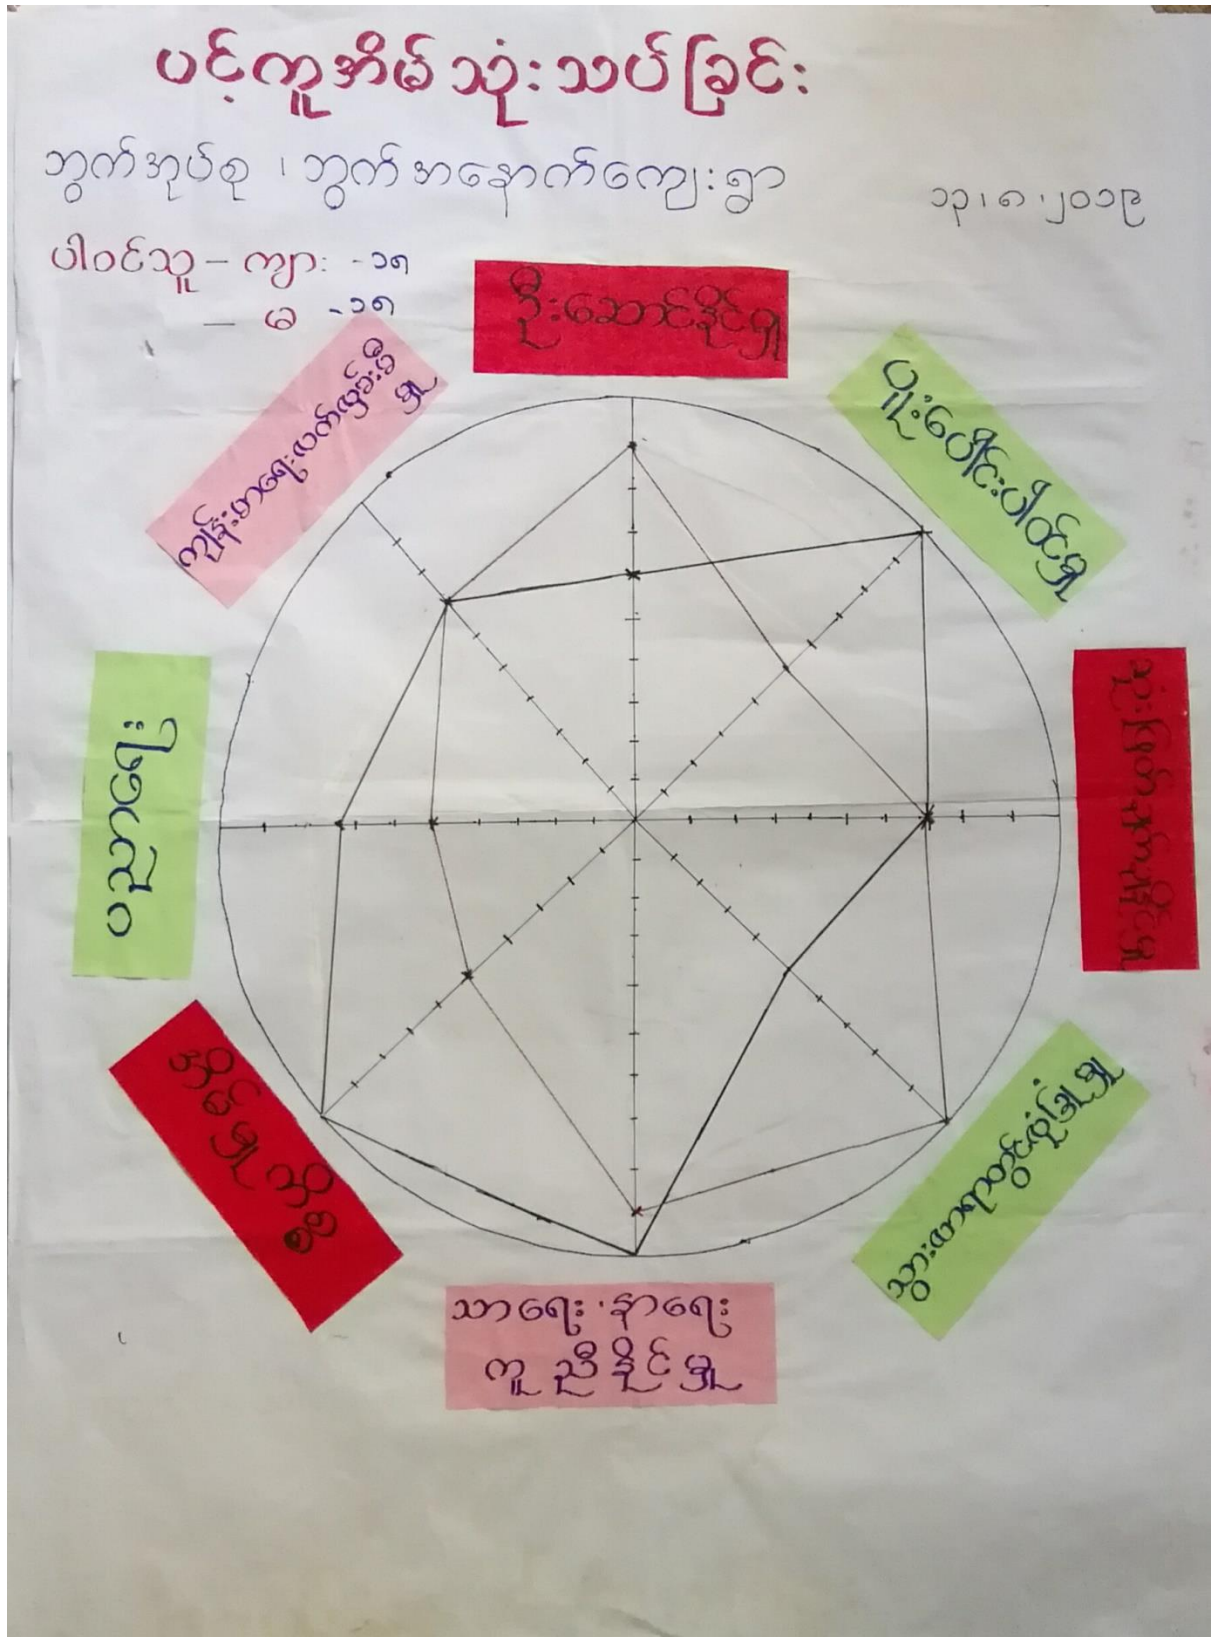 ပင့်ကူအိမ်သုံးသပ်ခြင်း
ဘွက်အုပ်စု ၊ ဘွက်အနောက်ကျေးရွာ
၁၃၊ ၈ ၊ ၂၀၁၉
ပါဝင်သူ - ကျား - ၁၈
- မ - ၁၈
ဦးဆောင်နိုင်မှု
ပူးပေါင်းပါဝင်မှု
ဆုံးဖြတ်ချက်ချနိုင်မှု
သာရေး ၊ နာရေး
ကူညီနိုင်မှု
ပညာရေး
ကျန်းမာရေးလက်လှမ်းမီ
မှု